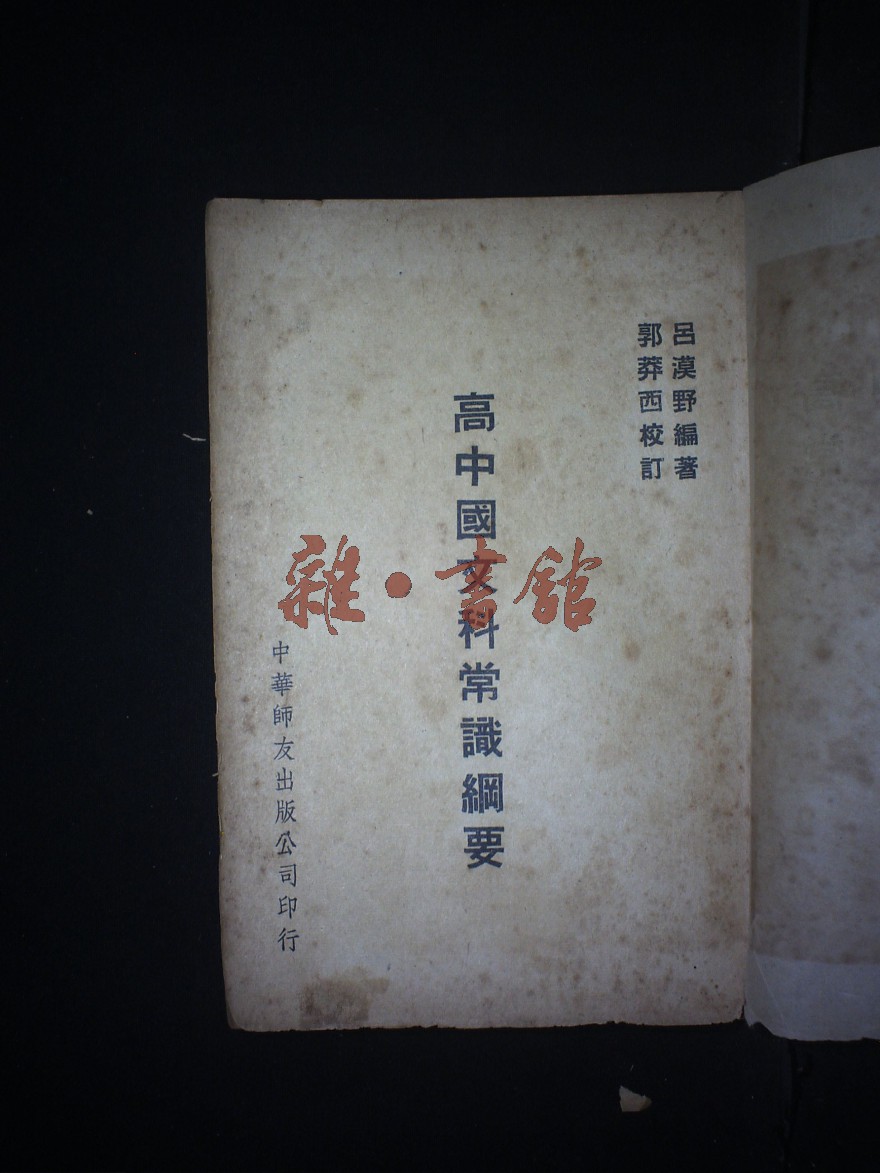 呂漠野編著
郭莽西校訂
高中國文科常識綱要
中華師友出版公司印行
雜·書館